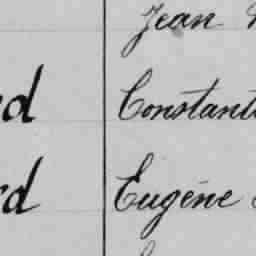 Jean
rd Constant
rd Eugène